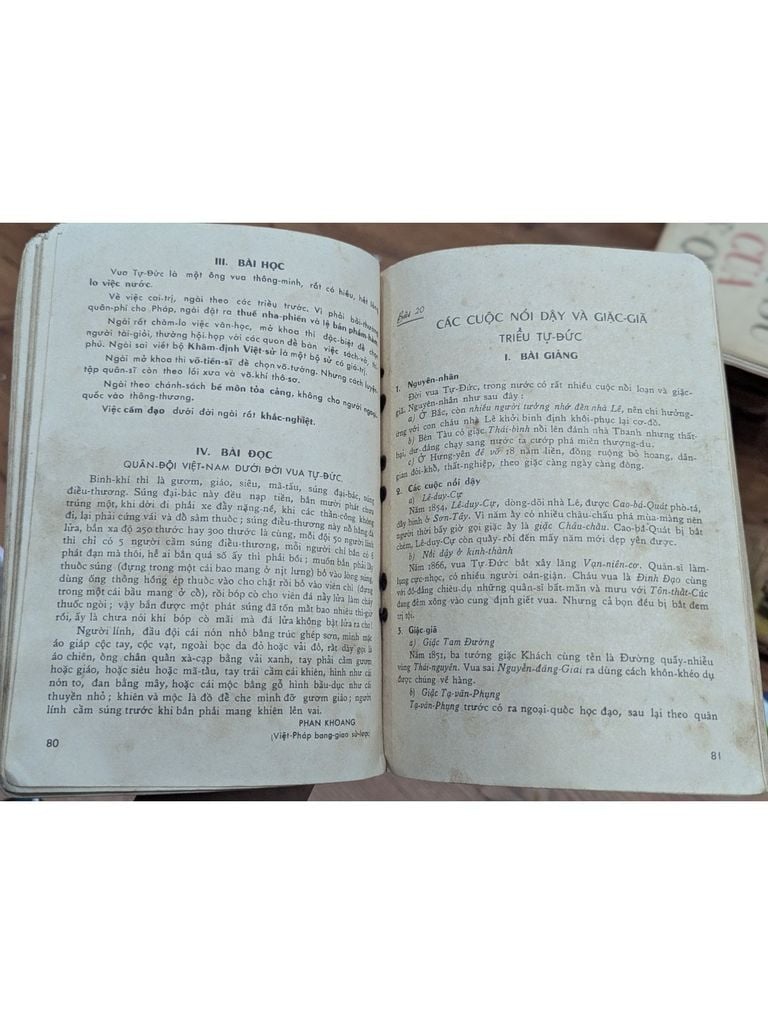 III. BÀI HỌC
Vua Tự-Đức là một ông vua thông-minh, rất có hiếu, hết
lo việc nước.
Về việc cai-trị, ngài theo các triều trước. Vì phải bồi-thường
quân-phí cho Pháp, ngài đặt ra thuế nha-phiến và lệ bán phẩm-hàm.
Ngài rất chăm-lo việc văn-học, mở khoa thi đặc-biệt để chọn
người tài-giỏi, thường hội-họp với các quan để bàn việc sách-vở, thi
phú. Ngài sai viết bộ Khâm-định Việt-sử là một bộ sử có giá-trị.
Ngài mở khoa thi võ-tiến-sĩ để chọn võ-tướng. Nhưng cách luyện-
tập quân-sĩ còn theo lối xưa và võ-khí thô-sơ.
Ngài theo chánh-sách bế môn tỏa cảng, không cho người ngoại-
quốc vào thông-thương.
Việc cấm đạo dưới đời ngài rất khắc-nghiệt.
IV. BÀI ĐỌC
QUÂN-ĐỘI VIỆT-NAM DƯỚI ĐỜI VUA TỰ-ĐỨC.
Binh-khí thì là gươm, giáo, siêu, mã-tấu, súng đại-bác, súng
điểu-thương. Súng đại-bác này đều nạp tiền, bắn mười phát chưa
trúng một, khi dời đi phải xe đẩy nặng-nề, khi các thần-công không
đi, lại phải cúng vái và đồ sàm thuốc; súng điểu-thương này nổ bằng đá
lửa, bắn xa độ 250 thước hay 300 thước là cùng, mỗi đội 50 người lính
thì chỉ có 5 người cầm súng điểu-thương, mỗi người chỉ bắn có 6
phát đạn mà thôi, hễ ai bắn quá số ấy thì phải bồi; muốn bắn, phải lấy
thuốc súng (đựng trong một cái bao mang ở nịt lưng) bỏ vào lòng súng,
dùng ống thông hồng ép thuốc vào cho chặt rồi bỏ vào viên chì (đựng
trong một cái bầu mang ở cổ), rồi bóp cò cho viên đá này lửa làm cháy
thuốc ngòi; vậy bắn được một phát súng đã tốn mất bao nhiêu thì-giờ
rồi, ấy là chưa nói khi bóp cò mãi mà đá lửa không bật lửa ra cho!
Người lính, đầu đội cái nón nhỏ bằng trúc ghép sơn, mình mặc
áo giáp cộc tay, cộc vạt, ngoài bọc da đỏ hoặc vải đỏ, rất dày gọi là
áo chiến, ông chân quần xà-cạp bằng vải xanh, tay phải cầm gươm
hoặc giáo, hoặc siêu hoặc mã-tấu, tay trái cầm cái khiên, hình như cái
nón to, đan bằng mây, hoặc cái mộc bằng gỗ hình bầu-dục như cái
thuyền nhỏ; khiên và mộc là đồ để che mình đỡ gươm giáo; người
lính cầm súng trước khi bắn phải mang khiên lên vai.
PHAN KHOANG
(Việt-Pháp bang-giao sử-lược)
80
Bài 20
CÁC CUỘC NỔI DẬY VÀ GIẶC-GIÃ
TRIỀU TỰ-ĐỨC
I. BÀI GIẢNG
1. Nguyên-nhân
Đời vua Tự-Đức, trong nước có rất nhiều cuộc nổi loạn và giặc-
giã. Nguyên-nhân như sau đây:
a) Ở Bắc, còn nhiều người tưởng nhớ đến nhà Lê, nên chí hướng-
ứng với con cháu nhà Lê khởi binh định khôi-phục lại cơ-đồ.
b) Bên Tàu có giặc Thái-bình nổi lên đánh nhà Thanh nhưng thất-
bại, dư-đảng chạy sang nước ta cướp phá miền thượng-du.
c) Ở Hưng-yên đê vỡ 18 năm liền, đồng ruộng bỏ hoang, dân-
gian đói-khổ, thất-nghiệp, theo giặc càng ngày càng đông.
2. Các cuộc nổi dậy
a) Lê-duy-Cự
Năm 1854, Lê-duy-Cự, dòng-dõi nhà Lê, được Cao-bá-Quát phò-tá,
dấy binh ở Sơn-Tây. Vì năm ấy có nhiều châu-chấu phá mùa-màng nên
người thời bấy giờ gọi giặc ấy là giặc Châu-chấu. Cao-bá-Quát bị bắt
chém, Lê-duy-Cự còn quấy-rối đến mấy năm mới dẹp yên được.
b) Nổi dậy ở kinh-thành
Năm 1866, vua Tự-Đức bắt xây lăng Vạn-niên-cơ. Quân-sĩ làm-
lụng cực-nhọc, có nhiều người oán-giận. Cháu vua là Đinh Đạo cùng
với đồ-đảng chiêu-dụ những quân-sĩ bất-mãn và mưu với Tôn-thất-Cúc
đang đêm xông vào cung định giết vua. Nhưng cả bọn đều bị bắt đem
trị tội.
3. Giặc-giã
a) Giặc Tam Đường
Năm 1851, ba tướng giặc Khách cùng tên là Đường quấy-nhiễu
vùng Thái-nguyên. Vua sai Nguyễn-đăng-Giai ra dùng cách khôn-khéo dụ
được chúng về hàng.
b) Giặc Tạ-văn-Phụng
Tạ-văn-Phụng trước có ra ngoại-quốc học đạo, sau lại theo quân
81
CỦA